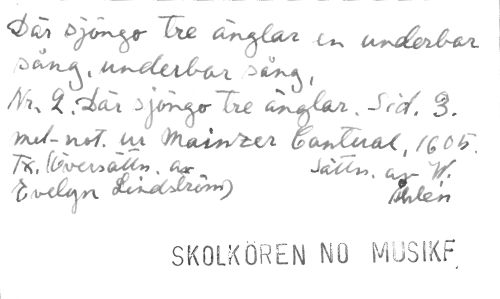 Där sjöngo tre änglar en underbar
sång, underbar sång,
Nr. 2. Där sjöngo tre änglar. Sid. 3.
mel-not. ur Mainzer Cantual, 1605.
Tx. (Översättn. av Sättn. av W.
Evelyn Lindström) Åhlén
SKOLKÖREN NO MUSIKF.